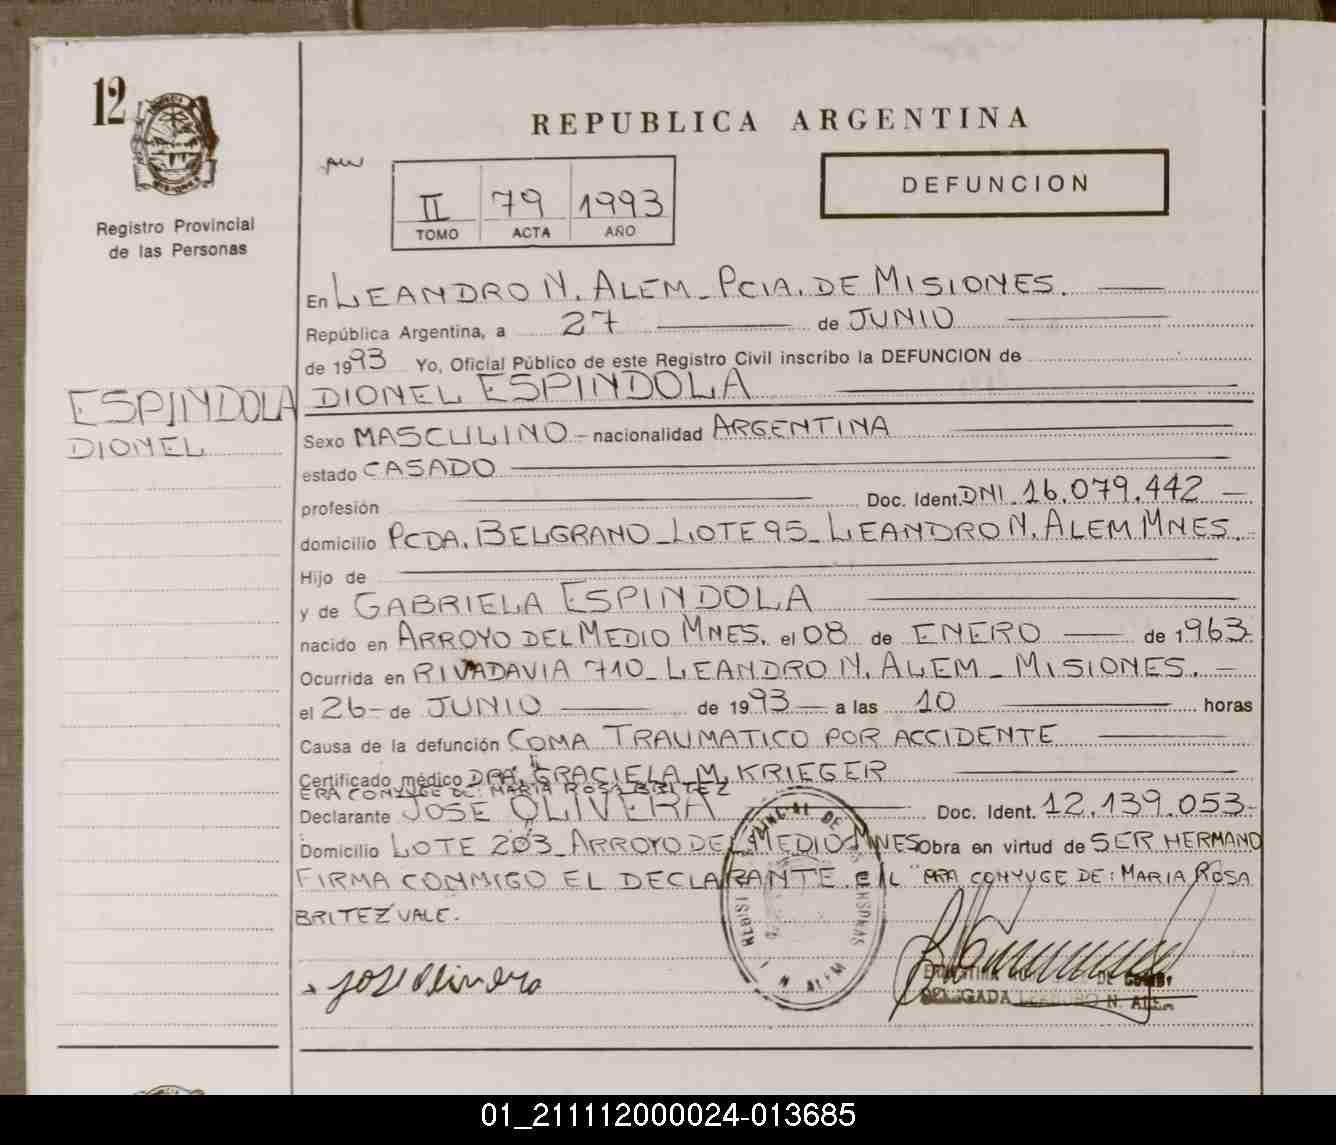 12
Registro Provincial
de las Personas
REPUBLICA ARGENTINA
II 79 1993
TOMO ACTA AÑO
DEFUNCION
En LEANDRO N. ALEM - PCIA. DE MISIONES.
República Argentina, a 27 de JUNIO
de 1993 Yo, Oficial Público de este Registro Civil inscribo la DEFUNCION de
ESPINDOLA
DIONEL
DIONEL ESPINDOLA
Sexo MASCULINO - nacionalidad ARGENTINA
estado CASADO
profesión Doc. Ident. DNI. 16.079.442 -
domicilio PCDA. BELGRANO - LOTE 95 - LEANDRO N. ALEM MNES.
Hijo de
y de GABRIELA ESPINDOLA
nacido en ARROYO DEL MEDIO MNES. el 08 de ENERO de 1963.
Ocurrida en RIVADAVIA 710 - LEANDRO N. ALEM - MISIONES. -
el 26 - de JUNIO de 1993 - a las 10 horas
Causa de la defunción COMA TRAUMATICO POR ACCIDENTE
Certificado médico DRA. GRACIELA M. KRIEGER
ERA CONYUGE DE: MARIA ROSA BRITEZ
Declarante JOSE OLIVERA Doc. Ident. 12.139.053-
Domicilio LOTE 203 - ARROYO DEL MEDIO MNES Obra en virtud de SER HERMANO
FIRMA CONMIGO EL DECLARANTE. E/L "ERA CONYUGE DE: MARIA ROSA
BRITEZ" VALE.
Jose Olivera
DELEGADA LEANDRO N. ALEM
01_211112000024-013685